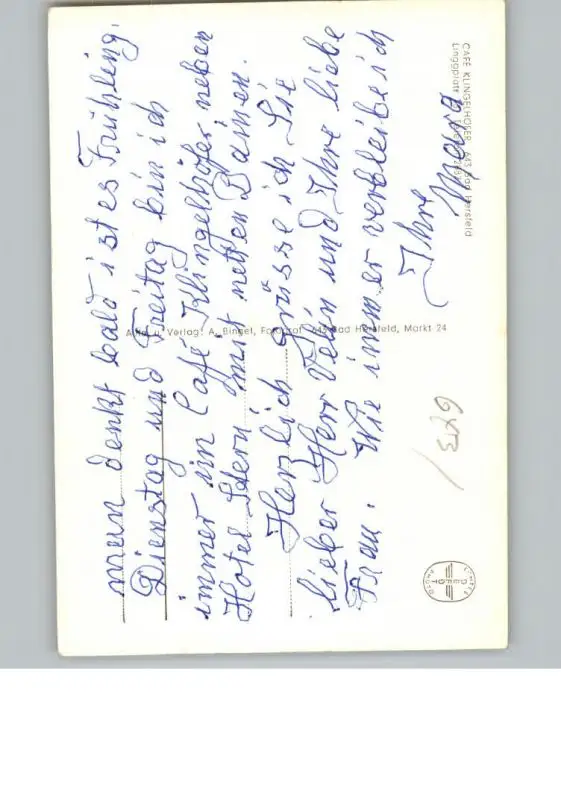 man denkt bald ist es Frühling.
Dienstag und Freitag bin ich
immer im Café Klingelhöfer, neben
Hotel Stern, mit netten Damen.
Herzlich grüsse ich Sie
lieber Herr und Ihre liebe
Frau. Wie immer verbleibe ich
Ihre
Mara
CAFE KLINGELHÖFER 643 Bad Hersfeld
Linggplatt
Verlag: A. Binget, Fotograf 643 Bad Hersfeld, Markt 24
DEFOT
PHOTO